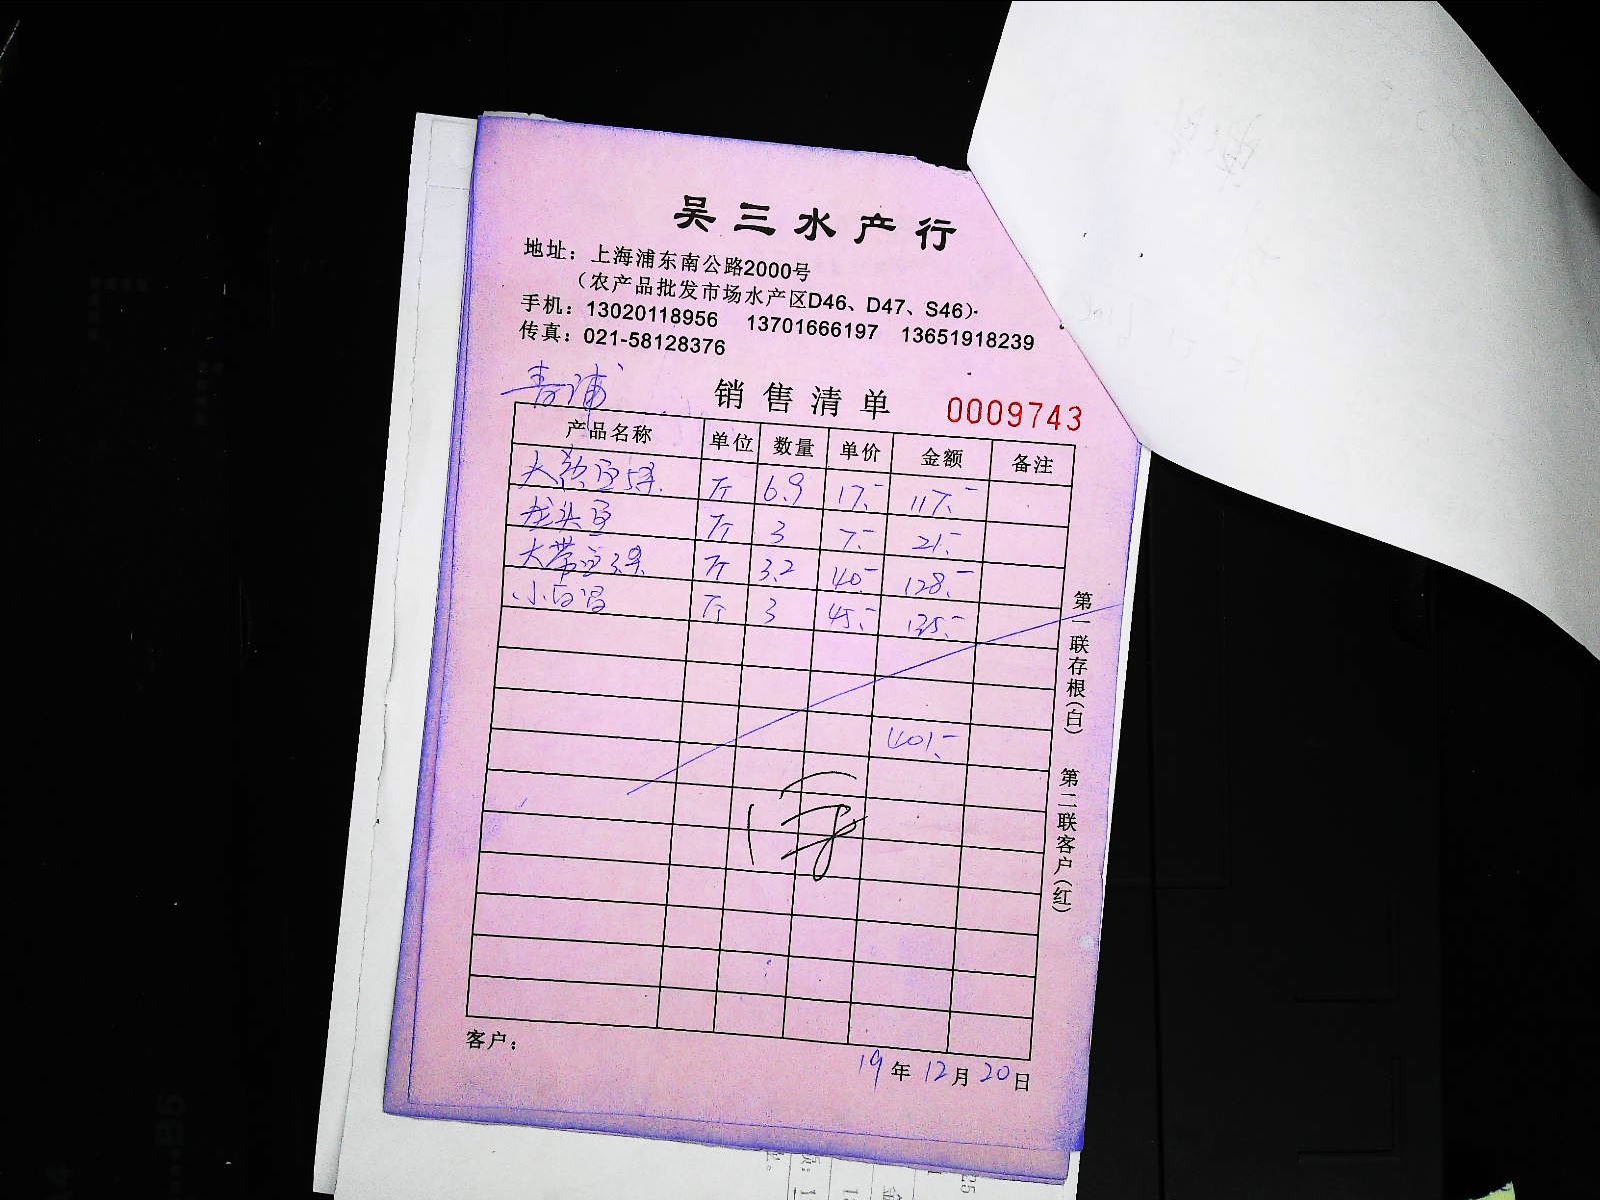 吴三水产行
地址：上海浦东南公路2000号
（农产品批发市场水产区D46、D47、S46）
手机：13020118956 13701666197 13651918239
传真：021-58128376
青浦
销售清单 0009743
产品名称 单位 数量 单价 金额 备注
大 5条 斤 6.9 17.- 117.-
龙头鱼 斤 3 7.- 21.-
大带鱼3条 斤 3.2 40.- 128.-
小白 斤 3 45.- 135.-
401.-
第一联存根（白）
第二联客户（红）
客户：
19年12月20日